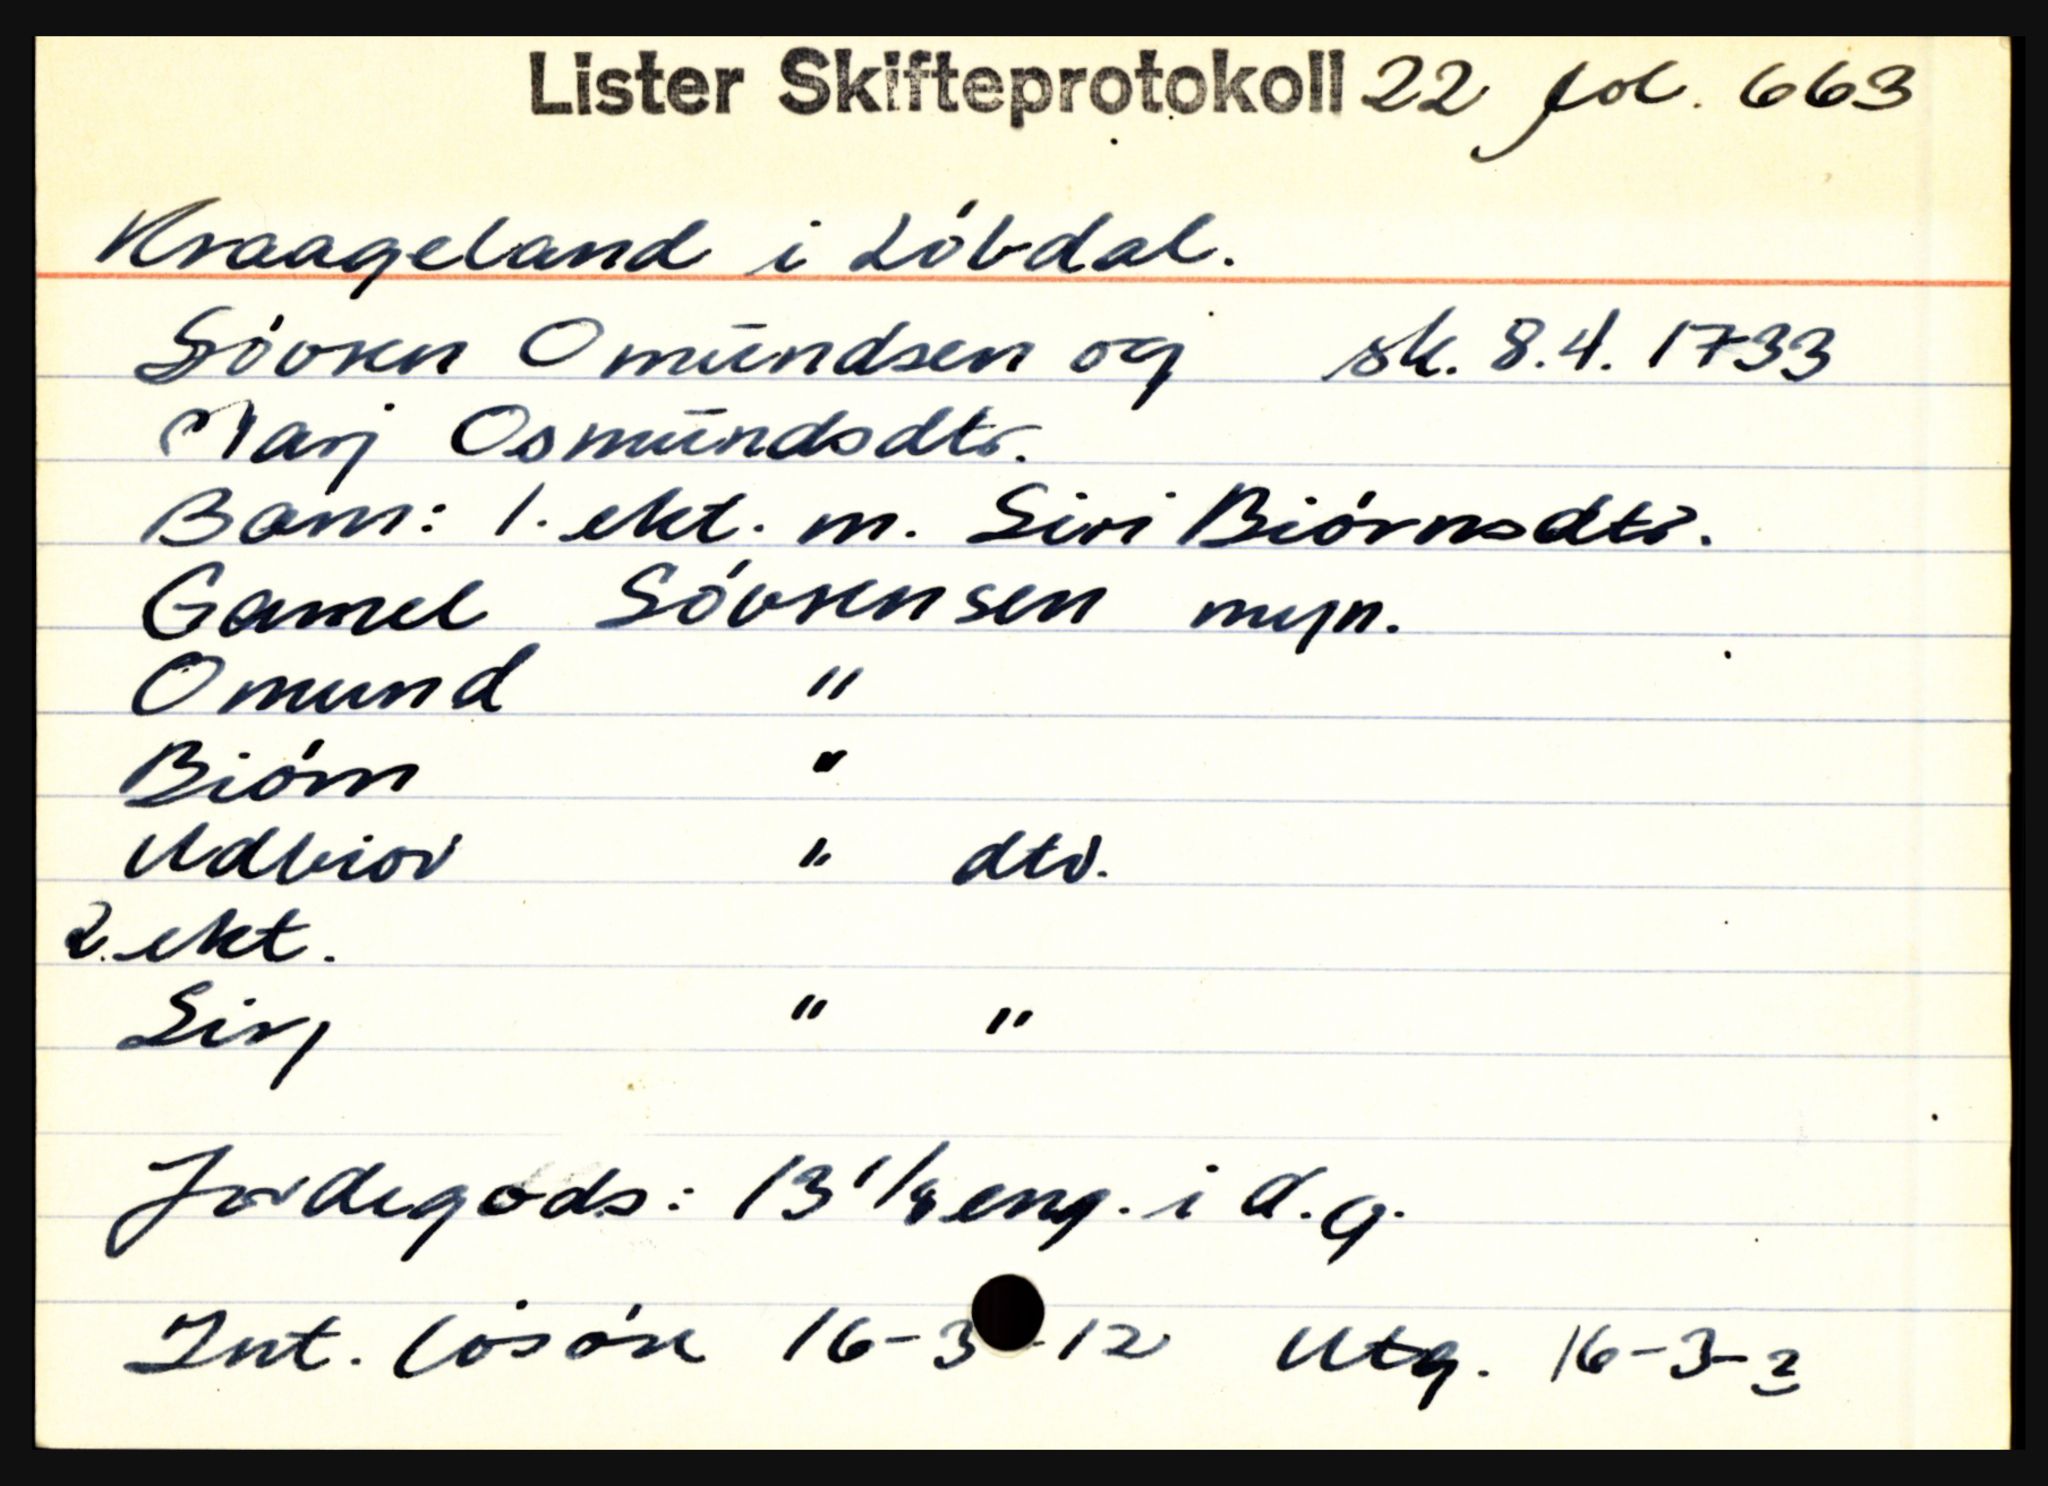 Lister Skifteprotokoll 22 fol. 663
Kraageland i Lóbdal.
Sóvren Omundsen og sk. 8.4. 1733
Marj Osmundsdtr.
Barn: 1. ekt. m. Siri Biórnsdtr.
Gamel Sóvrensen myn.
Omund "
Biórn "
Udbior " dtr.
2. ekt.
Sirj " "
Jordegods: 13 1/8 eng. i d. g.
Int. lösöre 16-3-12 Utg. 16-3-2